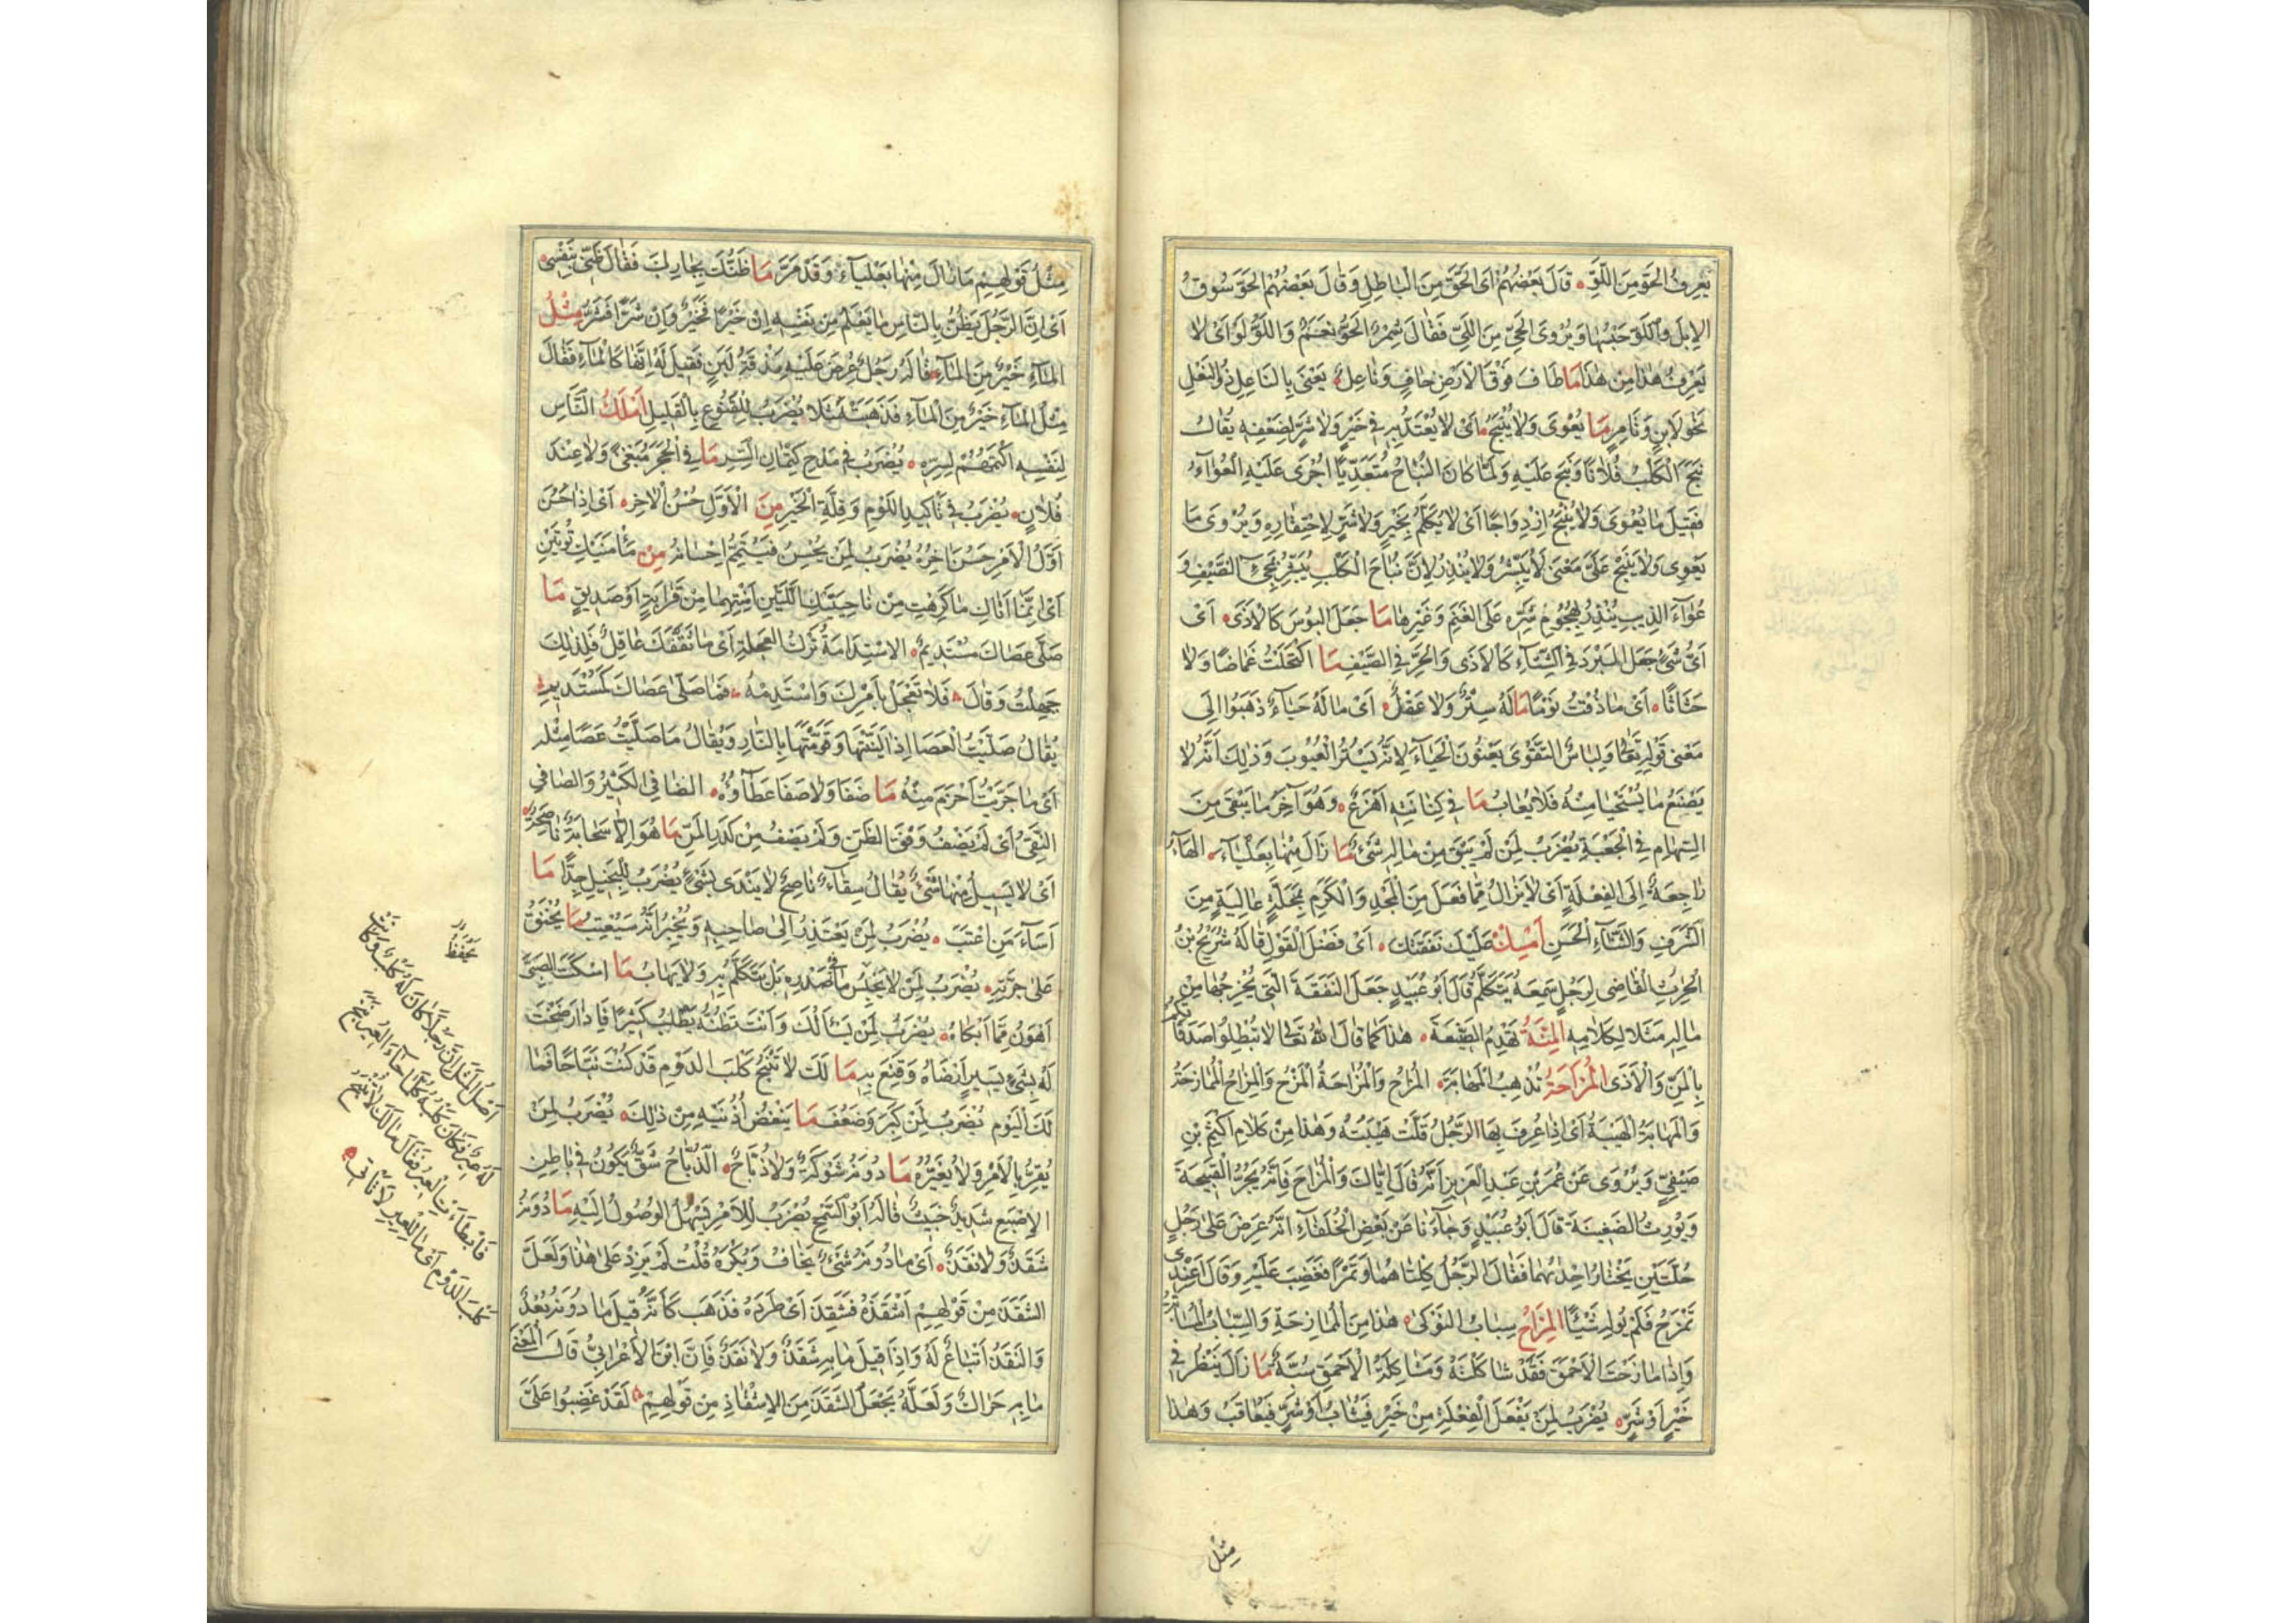 يَعْرِفُ الْحَوَّ مِنَ اللَّوِّ قَالَ بَعْضُهُمْ اَىِ الْحَقَّ مِنَ الْبَاطِلِ وَقَالَ بَعْضُهُمْ الْحَوُّ سُوقُ
الاِبِلِ وَاللَّوُّ حَبْسُهَا وَيُرْوَى الْحَىَّ مِنَ اللَّىِّ فَقَالَ شِمْرٌ الْحَوُّ نَعَمْ وَاللَّوُّ لَوْ اَىْ لَا
يَعْرِفُ هٰذَا مِنْ هٰذَا مَا طَافَ فَوْقَ الْاَرْضِ حَافٍ وَنَاعِلٌ يَعْنَى بِالنَّاعِلِ ذُو النَعْلِ
نَحْوَ لَابِنٍ وَتَامِرٍ مَا يُعْوَى وَلَا يُنْبَحُ اَىْ لَا يُعْتَدُّ بِهِ فِى خَيْرٍ وَلَا شَرٍّ لِضَعْفِهِ يُقَالُ
نَبَحَ الْكَلْبُ فُلَانًا وَنَبَحَ عَلَيْهِ وَلَمَّا كَانَ النُّبَاحُ مُتَعَدِّيًا اُجْرَى عَلَيْهِ الْعُوَاءُ
فَقِيلَ مَا يُعْوَى وَلَا يُنْبَحُ اِزْدِوَاجًا اَىْ لَا يُكَلَّمُ بِخَيْرٍ وَلَا شَرٍّ لِاحْتِقَارِهِ وَيُرْوَى مَا
يَعْوِى وَلَا يَنْبَحُ عَلَى مَعْنَى لَا يُبَشِّرُ وَلَا يُنْذِرُ لِاَنَّ نُبَاحَ الْكَلْبِ يُبَشِّرُ بِمَجِىءِ الضَّيْفِ وَ
عُوَاءَ الذِيبِ يُنْذِرُ بِهُجُومِ شَرِّهِ عَلَى الْغَنَمِ وَغَيْرِهَا مَا جَعَلَ الْبُوسَ كَالْاَذَى اَىْ
اَىُّ شَىْءٍ جَعَلَ الْبَرْدَ فِى الشِّتَاءِ كَالْاَذَى وَالْحَرِّ فِى الصَّيْفِ مَا اكْتَحَلْتُ غَمَاضًا وَلَا
حَثَاثًا اَىْ مَا ذُقْتُ نَوْمًا مَا لَهُ سِتْرٌ وَلَا عَقْلٌ اَىْ مَا لَهُ حَيَاءٌ ذَهَبُوا اِلَى
مَعْنَى قَوْلِهِ تَعَالَى وَلِبَاسُ التَّقْوَى يَعْنُونَ الْحَيَاءَ لِاَنَّهُ يَسْتُرُ الْعُيُوبَ وَذٰلِكَ اَنَّهُ لَا
يَصْنَعُ مَا يُسْتَحْيَا مِنْهُ فَلَا يُعَابُ مَا فِى كِنَانَتِهِ اَهْزَعُ وَهُوَ آخِرُ مَا يَبْقَى مِنَ
السِّهَامِ فِى الْجَعْبَةِ يُضْرَبُ لِمَنْ لَمْ يَبْقَ مِنْ مَالِهِ شَىْءٌ مَا زَالَ مِنْهَا بِعَلْيَاءَ الْهَاءُ
رَاجِعَةٌ اِلَى الفِعْلَةِ اَىْ لَا يَزَالُ مِمَّا فَعَلَ مِنَ الْمَجْدِ وَالْكَرَمِ بِمَحَلَّةٍ عَالِيَةٍ مِنَ
الشَّرَفِ وَالثَّنَاءِ الْحَسَنِ اَمْسِكْ عَلَيْكَ نَفَقَتَكَ اَىْ فَضْلَ الْقَوْلِ قَالَهُ شُرَيْحُ بْنُ
الْحٰرِثِ الْقَاضِى لِرَجُلٍ سَمِعَهُ يَتَكَلَّمُ قَالَ اَبُو عُبَيْدٍ جَعَلَ النَفَقَةَ الَّتِى يُخْرِجُهَا مِنْ
مَالِهِ مَثَلًا لِكَلَامِهِ الْمِنَّةُ تَهْدِمُ الصَّنِيعَةَ هٰذَا كَمَا قَالَ اللهُ تَعَالَى لَا تُبْطِلُوا صَدَقَاتِكُمْ
بِالْمَنِّ وَالْاَذَى الْمُزَاحَةُ تُذْهِبُ الْمَهَابَةَ الْمُزَاحُ وَالْمُزَاحَةُ الْمَزْحُ وَالْمِزَاحُ الْمُمَازَحَةُ
وَالْمَهَابَةُ الْهَيْبَةُ اَىْ اِذَا عُرِفَ بِهَا الرَّجُلُ قَلَّتْ هَيْبَتُهُ وَهٰذَا مِنْ كَلَامِ اَكْثَمَ بْنِ
صَيْفِىٍّ وَيُرْوَى عَنْ عُمَرَ بْنِ عَبْدِ الْعَزِيزِ اَنَّهُ قَالَ اِيَّاكَ وَالْمُزَاحَ فَاِنَّهُ يَجُرُّ الْقَبِيحَةَ
وَيُورِثُ الضَغِينَةَ قَالَ اَبُو عُبَيْدٍ وَجَاءَنَا عَنْ بَعْضِ الْخُلَفَاءِ اَنَّهُ عَرَضَ عَلَى رَجُلٍ
حُلَّتَيْنِ يَخْتَارُ اِحْدٰيهُمَا فَقَالَ الرَّجُلُ كِلْتَاهُمَا وَتَمْرًا فَغَضِبَ عَلَيْهِ وَقَالَ اَعِنْدِى
تَمْزَحُ فَلَمْ يُولِهِ شَيْئًا الْمِزَاحُ سِبَابُ النَّوْكَى هٰذَا مِنَ الْمُمَازَحَةِ وَالسِّبَابُ الْمُسَابَّةُ
وَاِذَا مَازَحْتَ الْاَحْمَقَ فَقَدْ شَاكَلْتَهُ وَمُشَاكِلَةُ الْاَحْمَقِ سُبَّةٌ مَا زَالَ يَنْظُرُ فِى
خَيْرٍ اَوْ شَرٍّ يُضْرَبُ لِمَنْ يَفْعَلُ الْفِعْلَةَ مِنْ خَيْرٍ فَيُثَابُ اَوْ شَرٍّ فَيُعَاقَبُ وَهٰذَا
مِثْل
مِثْلُ قَوْلِهِمْ مَا زَالَ مِنْهَا بِعَلْيَاءَ وَقَدْ مَرَّ مَا ظَنُّكَ بِجَارِكَ فَقَالَ ظَنِّى بِنَفْسِى
اَىْ اِنَّ الرَّجُلَ يَظُنُّ بِالنَّاسِ مَا يَعْلَمُ مِنْ نَفْسِهِ اِنْ خَيْرًا فَخَيْرٌ وَاِنْ شَرًّا فَشَرٌّ مِثْلُ
الْمَاءِ خَيْرٌ مِنَ الْمَاءِ قَالَهُ رَجُلٌ عُرِضَ عَلَيْهِ مَذْقَةُ لَبَنٍ فَقِيلَ لَهُ اِنَّهَا كَالْمَاءِ فَقَالَ
مِثْلُ الْمَاءِ خَيْرٌ مِنَ الْمَاءِ فَذَهَبَتْ مَثَلًا يُضْرَبُ لِلْقُنُوعِ بِالْقَلِيلِ اَمْلَكُ النَّاسِ
لِنَفْسِهِ اَكْتَمُهُمْ لِسِرِّهِ يُضْرَبُ فِى مَدْحِ كِتْمَانِ السِّرِّ مَا فِى الْحَجَرِ مَبْغًى وَلَا عِنْدَ
فُلَانٍ يُضْرَبُ فِى تَأْكِيدِ اللَّوْمِ وَقِلَّةِ الْخَيْرِ مِنَ الْاَوَّلِ حُسْنُ الْاٰخِرِ اَىْ اِذَا حَسُنَ
اَوَّلُ الْاَمْرِ حَسُنَ اٰخِرُهُ يُضْرَبُ لِمَنْ يُحْسِنُ فَيُتَمِّمُ اِحْسَانَهُ مِنْ مَأْمَنَيْكِ تُؤْتَيْنِ
اَىْ اِنَّمَا اَتَاكِ مَا كَرِهْتِ مِنْ نَاحِيَتَيْكِ اللَّتَيْنِ اَمِنْتِهِمَا مِنْ قَرَابَةٍ اَوْ صَدِيقٍ مَا
صَلَّى عَصَاكَ مُسْتَدِيمٌ الِاسْتِدَامَةُ تَرْكُ الْعَجَلَةِ اَىْ مَا ثَقَّفَكَ عَاقِلٌ فَلِذٰلِكَ
جَهِلْتُ وَقَالَ فَلَا تَعْجَلْ بِاَمْرِكَ وَاسْتَدِمْهُ فَمَا صَلَّى عَصَاكَ كَمُسْتَدِيمِ
يُقَالُ صَلَّيْتُ الْعَصَا اِذَا لَيَّنْتَهَا وَقَوَّمْتَهَا بِالنَّارِ وَيُقَالُ مَا صَلَّيْتُ عَصًا مِثْلَهُ
اَىْ مَا جَرَّبْتُ اَحْزَمَ مِنْهُ مَا ضَفَا وَلَا صَفَا عَطَاؤُهُ الضَّافِى الْكَثِيرُ وَالصَّافِى
النَّقِىُّ اَىْ لَمْ يَضْفُ وَفْقَ الظَّنِّ وَلَمْ يَصْفُ مِنْ كَدَرِ الْمَنِّ مَا هُوَ اِلَّا سَحَابَةٌ نَاصِحَةٌ
اَىْ لَا يَسِيلُ مِنْهَا شَىْءٌ يُقَالُ سِقَاءٌ نَاصِحٌ لَا يَنْدَى بِشَىْءٍ يُضْرَبُ لِلْبَخِيلِ جِدًّا مَا
اَسَاءَ مَنْ اَعْتَبَ يُضْرَبُ لِمَنْ يَعْتَذِرُ اِلَى صَاحِبِهِ وَيُخْبِرُ اَنَّهُ سَيُعْتِبُ مَا يَخْنُقُ
عَلَى جِرَّتِهِ يُضْرَبُ لِمَنْ لَا يَحْبِسُ مَا فِى صَدْرِهِ بَلْ يَتَكَلَّمُ بِهِ وَلَا يَهَابُ مَا اَسْكَتَ الصَبِىَّ
اَهْوَنُ مِمَّا اَبْكَاهُ يُضْرَبُ لِمَنْ يَسْاَلُكَ وَاَنْتَ تَظُنُّهُ يَطْلُبُ كَثِيرًا فَاِذَا رَضَخْتَ
لَهُ بِشَىْءٍ يَسِيرٍ اَرْضَاهُ وَقَنِعَ بِهِ مَا لَكَ لَا تَنْبَحُ كَلْبَ الدَوْمِ قَدْ كُنْتَ نَبَّاحًا فَمَا
لَكَ الْيَوْمَ يُضْرَبُ لِمَنْ كَبِرَ وَضَعُفَ مَا يَنْغُضُ اُذُنَيْهِ مِنْ ذٰلِكَ يُضْرَبُ لِمَنْ
يُقِرُّ بِالْاَمْرِ وَلَا يُغَيِّرُهُ مَا دُونَهُ شَوْكَةٌ وَلَا ذُبَّاحٌ الذُّبَّاحُ شَقٌّ يَكُونُ فِى بَاطِنِ
الاِصْبَعِ شَدِيدٌ خَبِيثٌ قَالَهُ اَبُو السَّمْحِ يُضْرَبُ لِلْاَمْرِ يَسْهُلُ الْوُصُولُ اِلَيْهِ مَا دُونَهُ
شَقَذٌ وَلَا نَقَذٌ اَىْ مَا دُونَهُ شَىْءٌ يُخَافُ وَيُكْرَهُ قُلْتُ لَمْ يَزِدْ عَلَى هٰذَا وَلَعَلَّ
الشَّقَذَ مِنْ قَوْلِهِمْ اَشْقَذَهُ فَشَقِذَ اَىْ طَرَدَهُ فَذَهَبَ كَاَنَّهُ قِيلَ مَا دُونَهُ بُعْدٌ
وَالنَّقَذُ اَتْبَاعٌ لَهُ وَاِذَا قِيلَ مَا بِهِ شَقَذٌ وَلَا نَقَذٌ فَاِنَّ ابْنَ الْاَعْرَابِىِّ قَالَ الْمَعْنَى
مَا بِهِ حَرَاكٌ وَلَعَلَّهُ يَجْعَلُ الشَّقَذَ مِنَ الْاِشْقَاذِ مِنْ قَوْلِهِمْ لَقَدْ غَضِبُوا عَلَىَّ
اَصْلُ الْمَثَلِ اَنَّ رَجُلًا كَانَ لَهُ كَلْبٌ وَكَانَتْ
لَهُ عِيرٌ فَكَانَ كَلْبُهُ كُلَّمَا جَاءَ الْعِيرُ نَبَحَ
فَاَبْطَاَتِ الْعِيرُ فَقَالَ مَا لَكَ لَا تَنْبَحُ
كَلْبَ الدَوْمِ اَىْ مَا لِلْعِيرِ لَا تَاْتِى